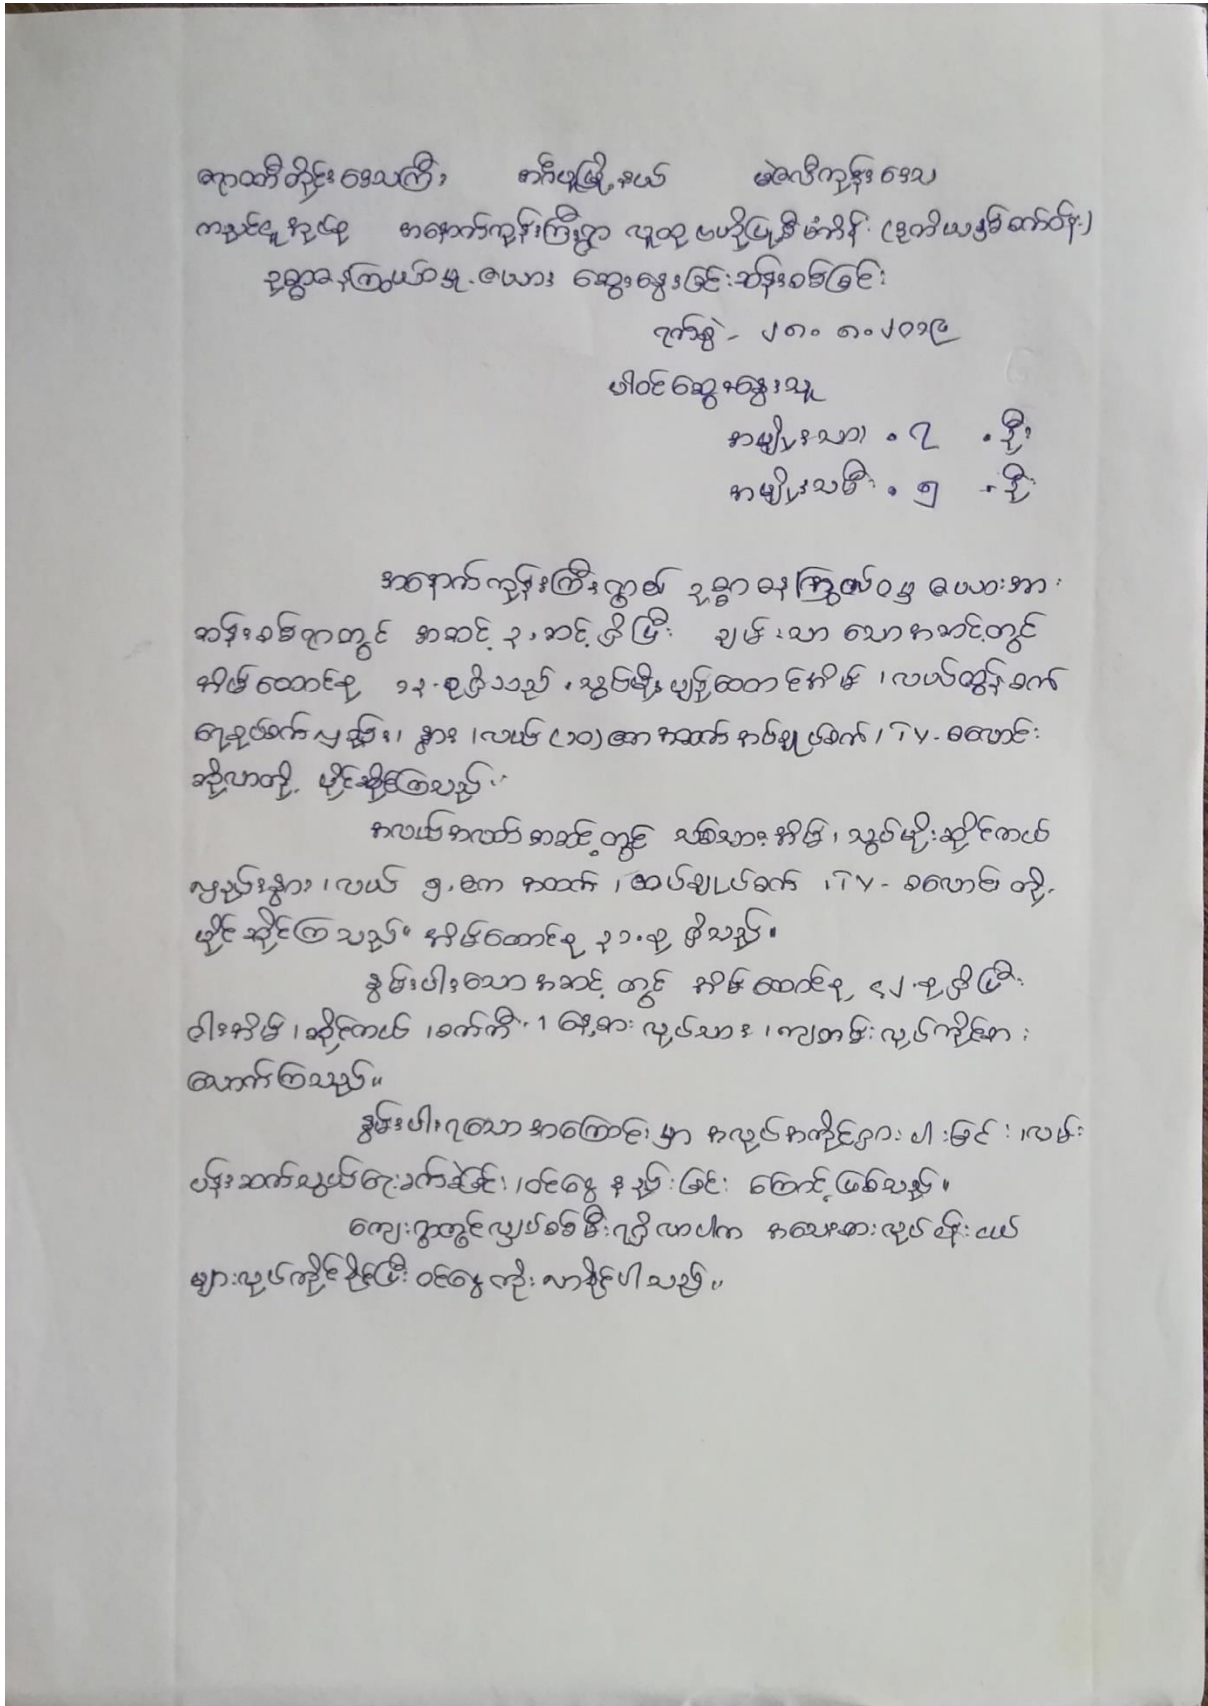 ဧရာဝတီတိုင်းဒေသကြီး အင်္ဂပူမြို့နယ် မဲဇလီကုန်းဒေသ
ကညင်ငူအုပ်စု အနောက်ကုန်းကြီးရွာ လူထုဗဟိုပြုစီမံကိန်း (ဒုတိယနှစ်စက်ဝန်း)
ဥစ္စာဓနကြွယ်ဝမှု ဇယား ဆွေးနွေးခြင်းဆန်းစစ်ခြင်း
ရက်စွဲ - ၂၈. ၈. ၂၀၁၉
ပါဝင်ဆွေးနွေးသူ
အမျိုးသား . ၇ . ဦး
အမျိုးသမီး . ၅ - ဦး
အနောက်ကုန်းကြီးရွာ၏ ဥစ္စာဓနကြွယ်ဝမှု ဇယားအား
ဆန်းစစ်ရာတွင် အဆင့် ၃.ဆင့်ရှိပြီး ချမ်းသာသောအဆင့်တွင်
အိမ်ထောင်စု ၁၃.စုရှိသည် ၊ သွပ်မိုးပျဉ်ထောင်အိမ် ၊ လယ်ထွန်စက်
ရေစုပ်စက် လှည်း၊ နွား ၊ လယ် (၁၀) ဧကအထက် အပ်ချုပ်စက် ၊ TV - စလောင်း
ဆိုလာတို့ ပိုင်ဆိုင်ကြသည်။
အလယ်အလတ်အဆင့်တွင် သစ်သားအိမ် ၊ သွပ်မိုးဆိုင်ကယ်
လှည်းနွား ၊ လယ် ၅.ဧက အထက် ၊ အပ်ချုပ်စက် ၊ TV - စလောင်းတို့
ပိုင်ဆိုင်ကြသည်။ အိမ်ထောင်စု ၃၁.စု ရှိသည်။
နွမ်းပါးသောအဆင့်တွင် အိမ်ထောင်စု ၄၂.စုရှိပြီး
ဝါးအိမ် ၊ ဆိုင်ကယ် ၊ စက်ကီး ၊ နေ့စားလုပ်သား ၊ ကျဘမ်းလုပ်ကိုင်စား
သောက်ကြသည်။
နွမ်းပါးရသောအကြောင်းမှာ အလုပ်အကိုင်ရှားပါးခြင်း ၊ လမ်း
ပန်းဆက်သွယ်ရေးခက်ခဲခြင်း ၊ ဝင်ငွေနည်းခြင်းကြောင့်ဖြစ်သည်။
ကျေးရွာတွင်လျှပ်စစ်မီးရရှိလာပါက အသေးစားလုပ်ငန်းငယ်
များလုပ်ကိုင်နိုင်ပြီး ဝင်ငွေတိုးလာနိုင်ပါသည်။